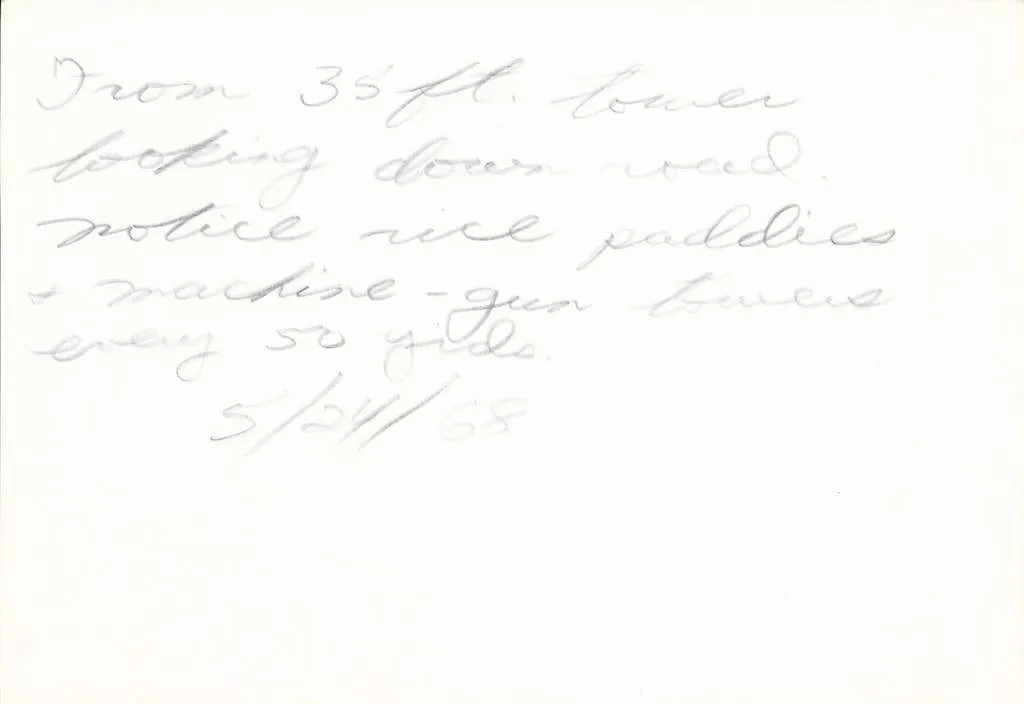 From 35 ft. tower
looking down road.
notice rice paddies
+ machine-gun towers
every 50 yrds.
5/24/68